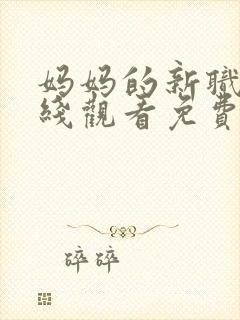 妈妈的新職
綫觀看免費
碎碎